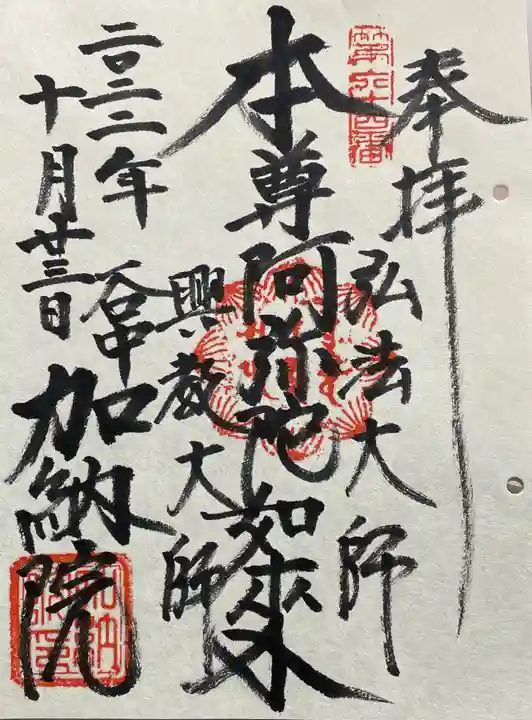 奉拝
第六十四番
弘法大師
本尊阿弥陀如来
興教大師
谷中
加納院
二〇二二年
十月廿三日